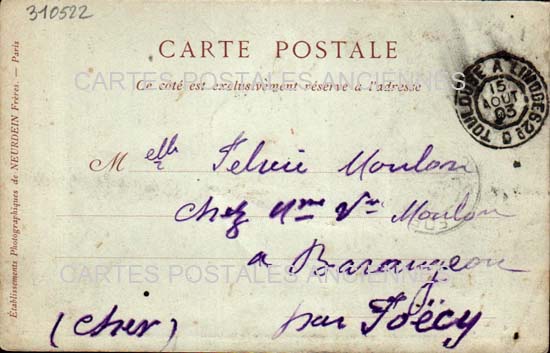 310522
CARTE POSTALE
CARTES POSTALES ANCIENNES
Ce côté est exclusivement réservé à l'adresse
TOULOUSE A LIMOGES 2º D
15
AOUT
05
Établissements Photographiques de NEURDEIN Frères. — Paris
Melle Moulon
chez Mme Vve Moulon
a Barangeon
CARTES POSTALES ANCIENNES
par Foëcy
(Cher)